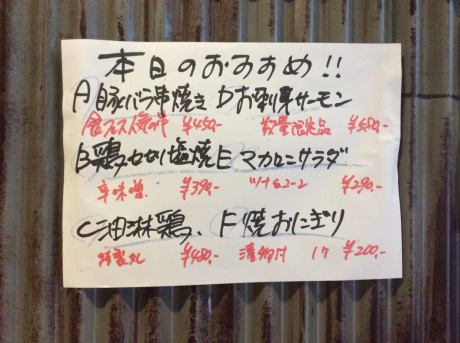 本日のおすすめ!!
A 豚バラ串焼き D お刺身サーモン
食フェス人気No.1 ¥450- 数量限定品 ¥580-
B 鶏せせり塩焼 E マカロニサラダ
辛味噌 ¥390- ツナ&コーン ¥290-
C 油淋鶏、 F 焼おにぎり
特製タレ ¥480- 漬物付 1ケ ¥200-